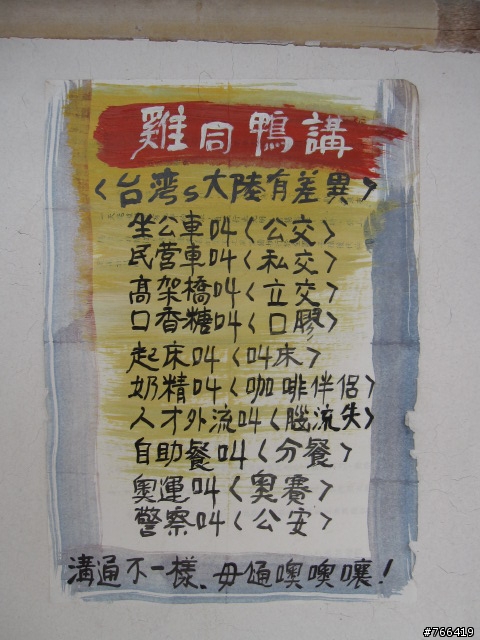 雞同鴨講
<台湾s大陸有差異>
坐公車叫<公交>
民营車叫<私交>
高架橋叫<立交>
口香糖叫<口膠>
起床叫<叫床>
奶精叫<咖啡伴侣>
人才外流叫<腦流失>
自助餐叫<分餐>
奧運叫<奧賽>
警察叫<公安>
溝通不一樣、毋通噢噢嚷!
#766419